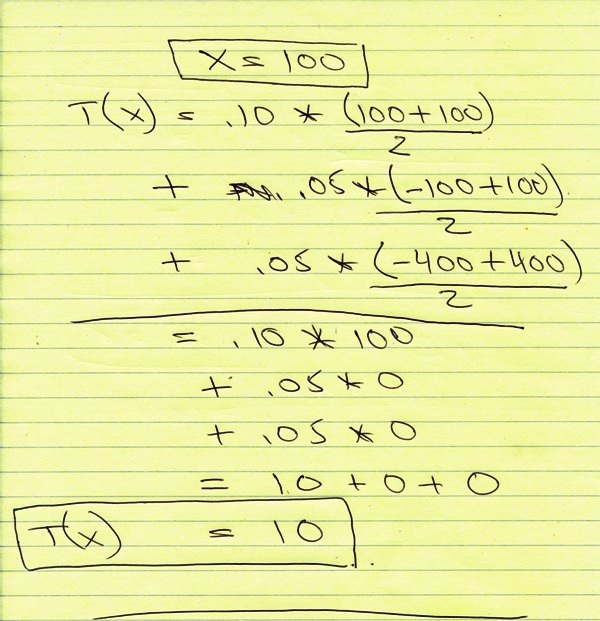 X = 100
T(X) = .10 * (100+100)
2
+ .05 * (-100+100)
2
+ .05 * (-400+400)
2
= .10 * 100
+ .05 * 0
+ .05 * 0
= 10 + 0 + 0
T(X) = 10